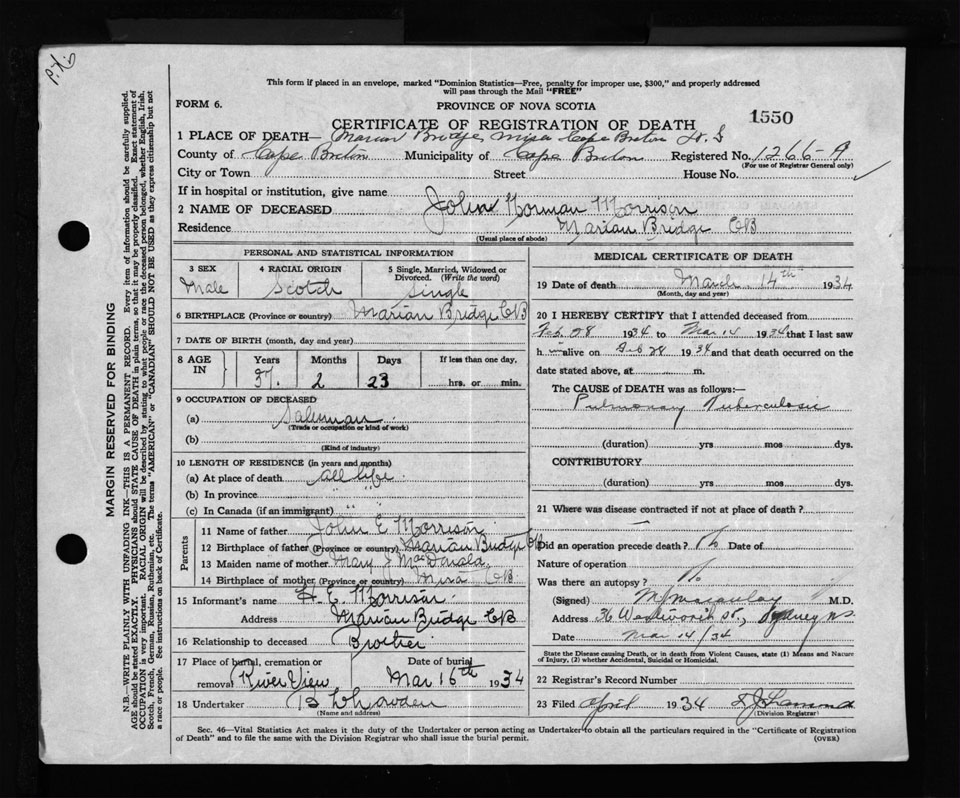 P.X.B
This form if placed in an envelope, marked "Dominion Statistics—Free, penalty for improper use, $300," and properly addressed
will pass through the Mail "FREE"
FORM 6.
PROVINCE OF NOVA SCOTIA
CERTIFICATE OF REGISTRATION OF DEATH
1550
1 PLACE OF DEATH— Marian Bridge, Mira Cape Breton
County of Cape Breton Municipality of Cape Breton Registered No. 1266-A
(For use of Registrar General only)
City or Town Street House No.
If in hospital or institution, give name
2 NAME OF DECEASED John Norman Morrison
Residence Marian Bridge CB
(Usual place of abode)
PERSONAL AND STATISTICAL INFORMATION
3 SEX 4 RACIAL ORIGIN 5 Single, Married, Widowed or
Divorced. (Write the word)
Male Scotch Single
6 BIRTHPLACE (Province or country) Marian Bridge CB
7 DATE OF BIRTH (month, day and year)
8 AGE IN Years Months Days If less than one day,
37. 2 23 hrs. or min.
9 OCCUPATION OF DECEASED
(a) Salesman
(Trade or occupation or kind of work)
(b)
(Kind of industry)
10 LENGTH OF RESIDENCE (in years and months)
(a) At place of death all life
(b) In province " "
(c) In Canada (if an immigrant) " "
Parents
11 Name of father John E Morrison
12 Birthplace of father (Province or country) Marian Bridge CB
13 Maiden name of mother Mary J MacDonald
14 Birthplace of mother (Province or country) Mira CB
15 Informant's name H. E. Morrison
Address Marian Bridge CB
16 Relationship to deceased Brother
17 Place of burial, cremation or Date of burial
removal River View Mar 16th 1934
18 Undertaker
(Name and address)
MEDICAL CERTIFICATE OF DEATH
19 Date of death March 14th 1934
(Month, day and year)
20 I HEREBY CERTIFY that I attended deceased from
Feb. 28 1934 to Mar 14 1934 that I last saw
h im alive on Feb 28 1934 and that death occurred on the
date stated above, at m.
The CAUSE of DEATH was as follows:—
Pulmonary Tuberculosis
(duration) yrs mos dys.
CONTRIBUTORY
(duration) yrs mos dys.
21 Where was disease contracted if not at place of death?
Did an operation precede death? No Date of
Nature of operation
Was there an autopsy? No
(Signed) M. J. Macaulay M.D.
Address 36 Wentworth St., Sydney NS
Date Mar 14/34
State the Disease causing Death, or in death from Violent Causes, state (1) Means and Nature
of Injury, (2) whether Accidental, Suicidal or Homicidal.
22 Registrar's Record Number
23 Filed April 1934
(Division Registrar)
Sec. 46—Vital Statistics Act makes it the duty of the Undertaker or person acting as Undertaker to obtain all the particulars required in the "Certificate of Registration
of Death" and to file the same with the Division Registrar who shall issue the burial permit.
(OVER)
MARGIN RESERVED FOR BINDING
N.B.—WRITE PLAINLY WITH UNFADING INK—THIS IS A PERMANENT RECORD. Every item of information should be carefully supplied.
AGE should be stated EXACTLY. PHYSICIANS should STATE CAUSE OF DEATH in plain terms, so that it may be properly classified. Exact statement of
OCCUPATION is very important. RACIAL ORIGIN will be described by stating to what people or race the deceased person belonged, whether English, Irish,
Scotch, French, German, Russian, Ruthenian, etc. The terms "AMERICAN" or "CANADIAN" SHOULD NOT BE USED as they express citizenship but not
a race or people. See instructions on back of Certificate.